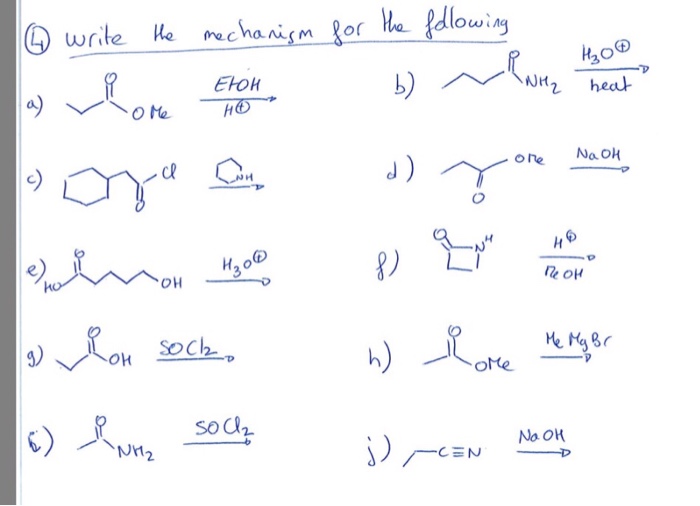 ④ write the mechanism for the following
a) O OMe EtOH H⊕
b) O NH₂ H₃O⊕ heat
c) Cl O NH
d) OMe O NaOH
e) HO O OH H₃O⊕
f) O N H H⊕ MeOH
g) O OH SOCl₂
h) O OMe MeMgBr
i) O NH₂ SOCl₂
j) C≡N NaOH